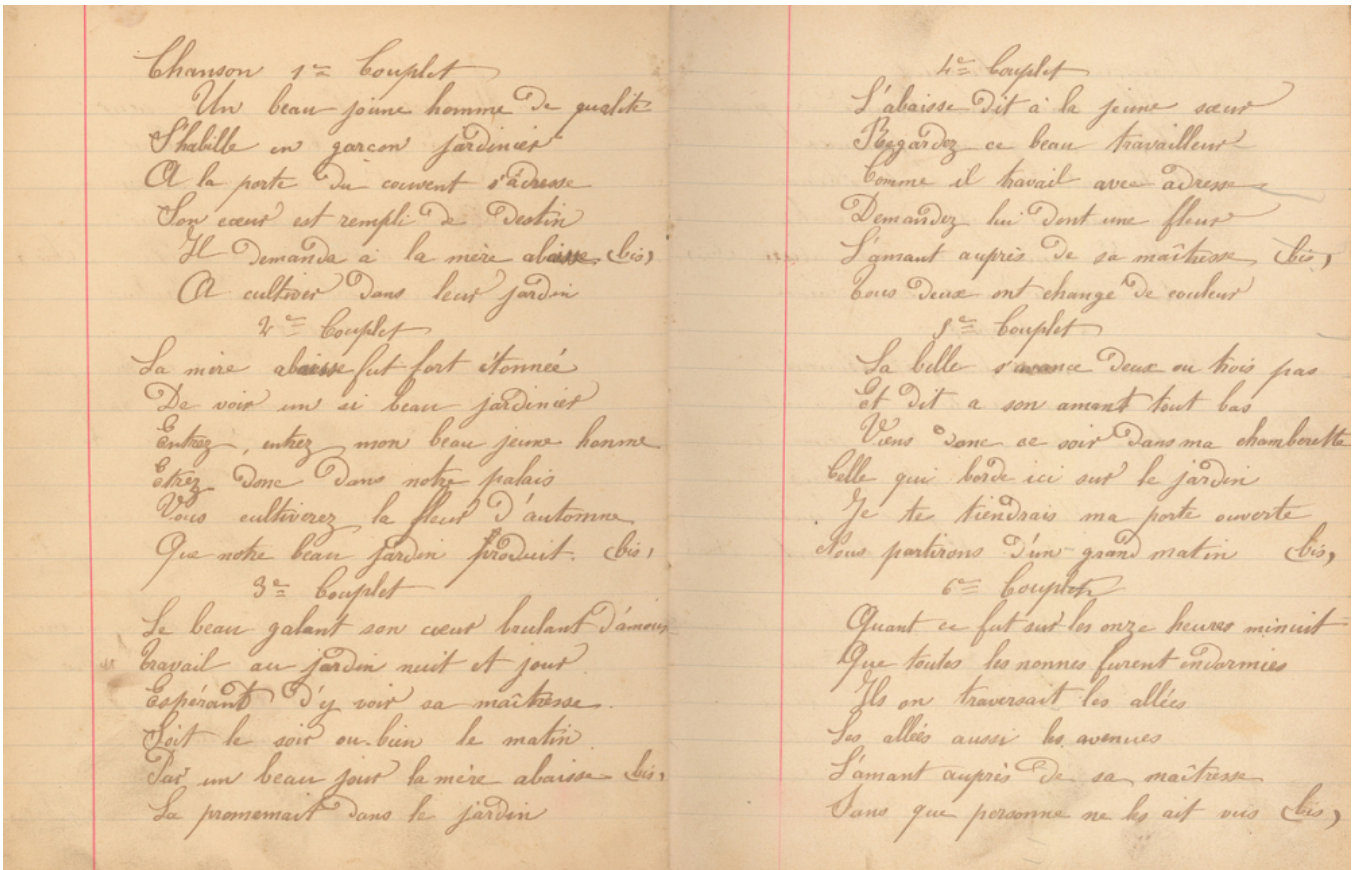 Chanson 1er Couplet
Un beau jeune homme de qualité
S'habille en garçon jardinier
A la porte du couvent s'adresse
Son cœur est rempli de Destin
Il demanda à la mère abaisse (bis)
A cultiver dans leur jardin
2e Couplet
La mère abaisse fut fort étonnée
De voir un si beau jardinier
Entrez, entrez mon beau jeune homme
Etrez donc dans notre palais
Vous cultiverez la fleur d'automne
Que notre beau jardin produit. (bis)
3e Couplet
Le beau galant son cœur brulant d'amour
Travail au jardin nuit et jour
Espérant d'y voir sa maîtresse
Soit le soir ou bien le matin
Par un beau jour la mère abaisse (bis)
La promenait dans le jardin
4e Couplet
L'abaisse dit à la jeune sœur
Regardez ce beau travailleur
Comme il travail avec adresse
Demandez lui dont une fleur
L'amant auprès de sa maîtresse (bis)
Tous deux ont change de couleur
5e Couplet
La belle s'avance deux ou trois pas
Et dit a son amant tout bas
Viens donc ce soir dans ma chamberette
Celle qui borde ici sur le jardin
Je te tiendrais ma porte ouverte
Nous partirons d'un grand matin (bis)
6e Couplet
Quant ce fut sur les onze heures minuit
Que toutes les nonnes furent endormies
Ils on traversait les allées
Les allées aussi les avenues
L'amant auprès de sa maîtresse
Sans que personne ne les ait vus (bis)